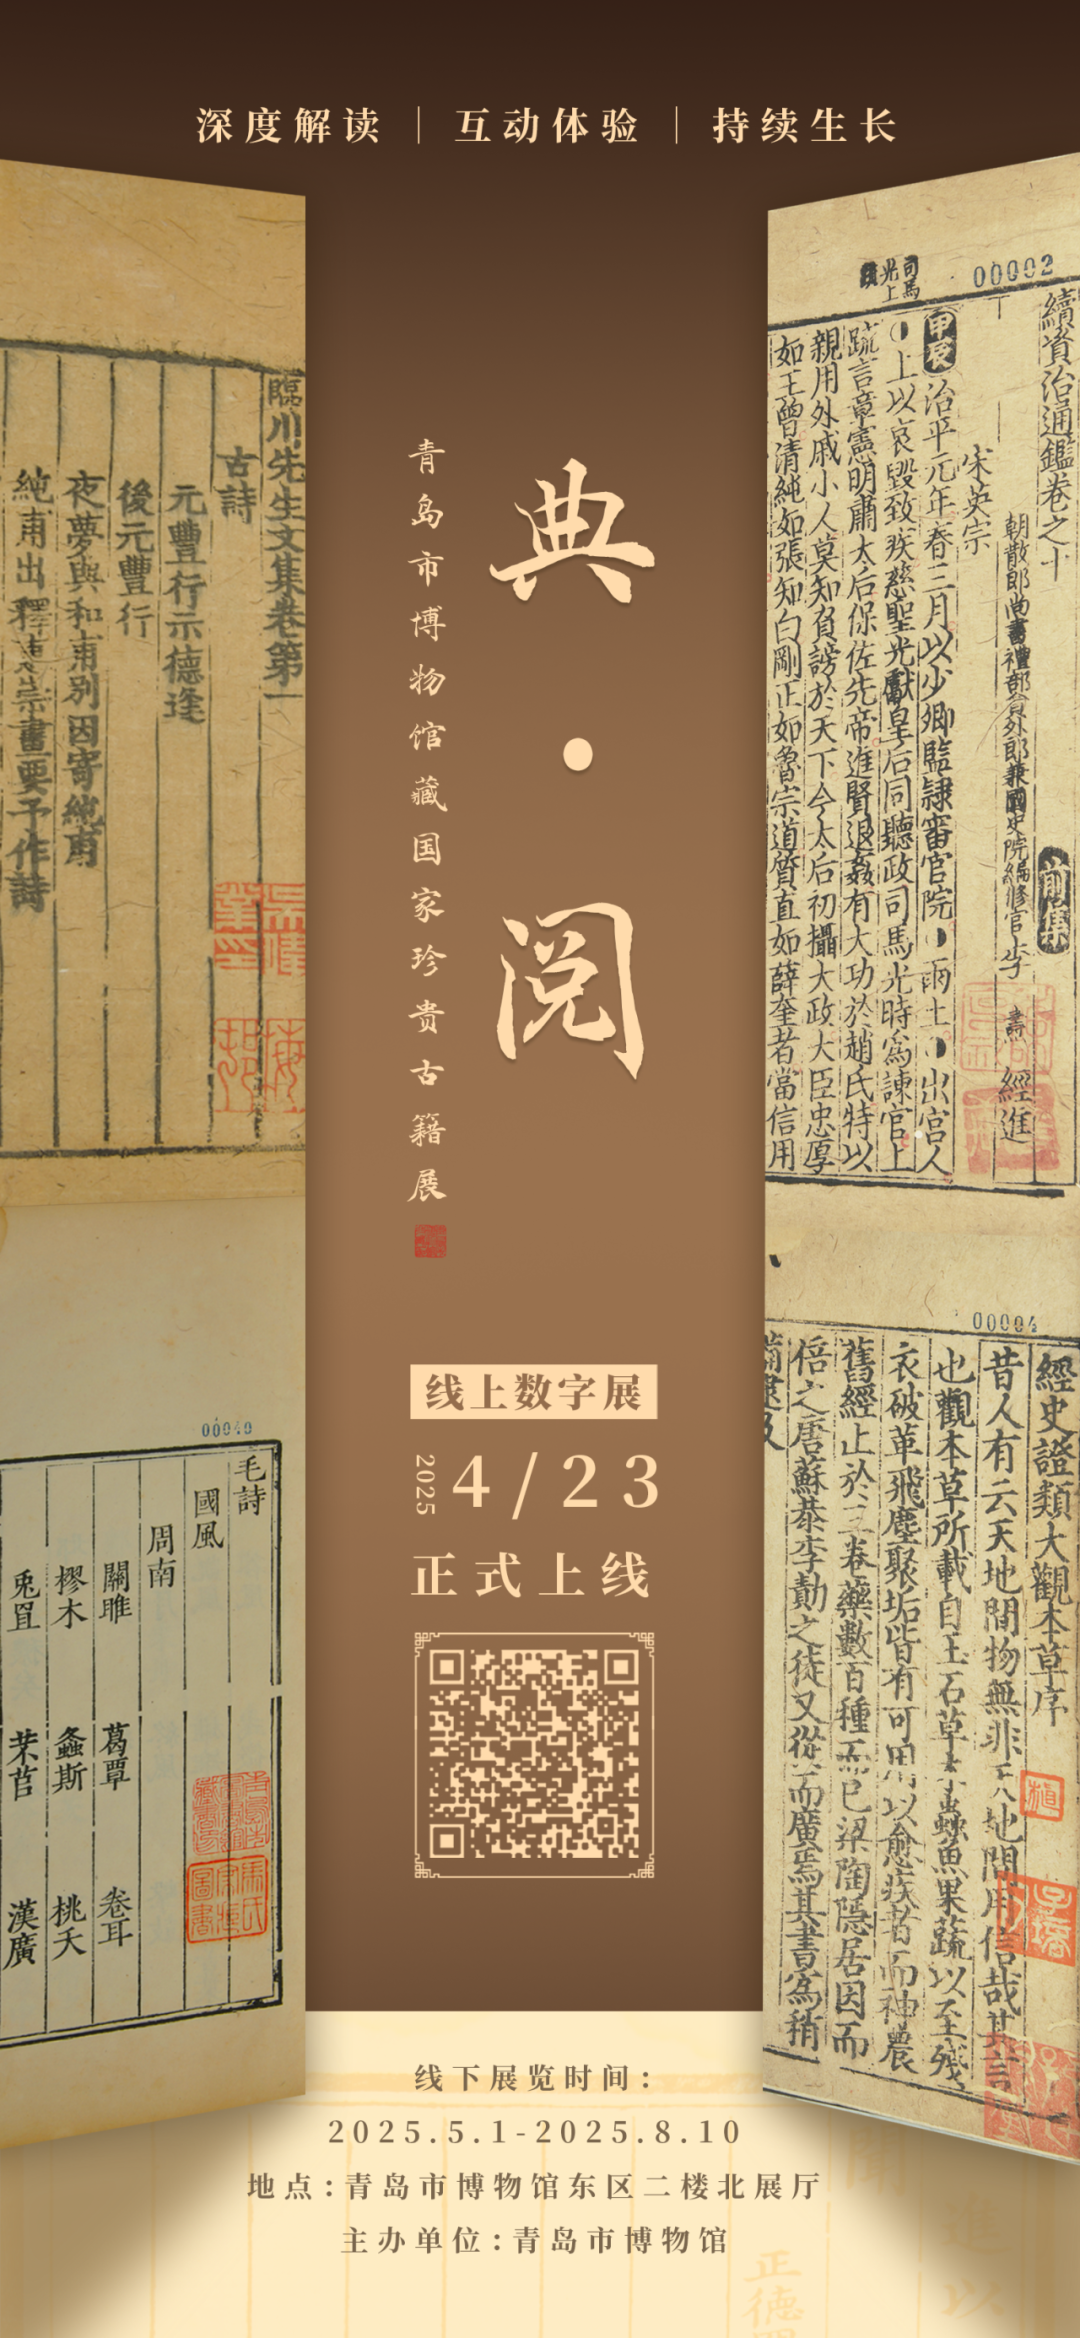 深度解读｜互动体验｜持续生长
典·阅
青岛市博物馆藏国家珍贵古籍展
线上数字展
2025
4/23
正式上线
线下展览时间:
2025.5.1-2025.8.10
地点:青岛市博物馆东区二楼北展厅
主办单位:青岛市博物馆
臨川先生文集卷第一
古詩
元豐行示德逢
後元豐行
夜夢與和甫別因寄純甫
00040
毛詩
國風
周南
關雎 葛覃 卷耳
樛木 螽斯 桃夭
兎罝 芣苢 漢廣
司馬光上
00002
續資治通鑑卷之十
前集
朝散郎尚書禮部員外郎兼國史院編修官李 燾 經進
宋英宗
甲辰治平元年春三月以少卿監隷審官院雨土出宮人
上以哀毀致疾慈聖光獻皇后同聽政司馬光時爲諫官上
疏言章憲明肅太后保佐先帝進賢退姦有大功於趙氏特以
親用外戚小人莫知負謗於天下今太后初攝大政大臣忠厚
如王曾清純如張知白剛正如魯宗道質直如薛奎者當信用
00004
經史證類大觀本草序
昔人有云天地間物無非天地間用信哉其言
也觀本草所載自玉石草木蟲魚果蔬以至殘
衣破革飛塵聚垢皆有可用以愈疾者而神農
舊經止於三卷藥數百種而已梁陶隱居因而
倍之唐蘇恭李勣之徒又從而廣焉其書爲稍